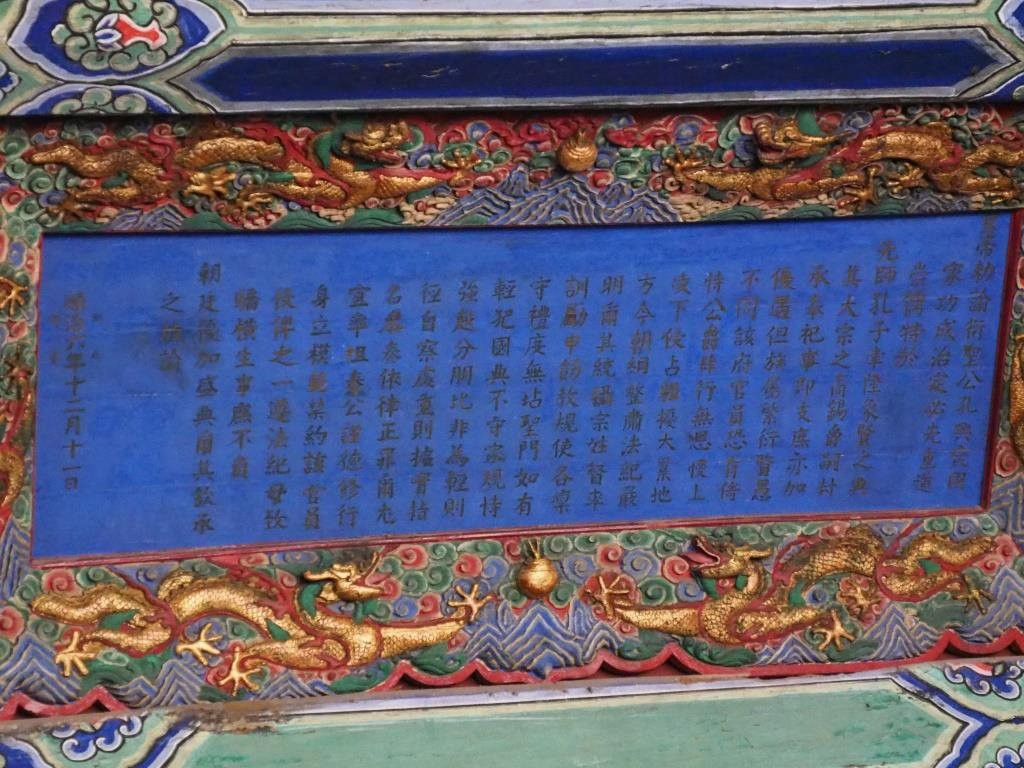 皇帝勅諭衍聖公孔興燮國
家功成治定必先重道
崇儒特於
先師孔子聿隆象賢之典
其大宗之裔錫爵嗣封
承奉祀事即支庶亦加
優遇但族屬繁衍賢愚
不同該府官員恐有倚
恃公爵肆行無忌慢上
凌下侵占騷擾大業地
方今朝綱整肅法紀嚴
明爾其統攝宗姓督率
訓勵申飭教規使各凜
守禮度無玷聖門如有
輕犯國典不守家規恃
強越分朋比非為輕則
徑自察處重則據實指
名參奏依律正罪爾尤
宜率祖奉公謹德修行
身立模範禁約該管員
役俾之一遵法紀毋致
驕橫生事庶不負
朝廷優加盛典爾其欽承
之故諭
順治六年十二月十一日